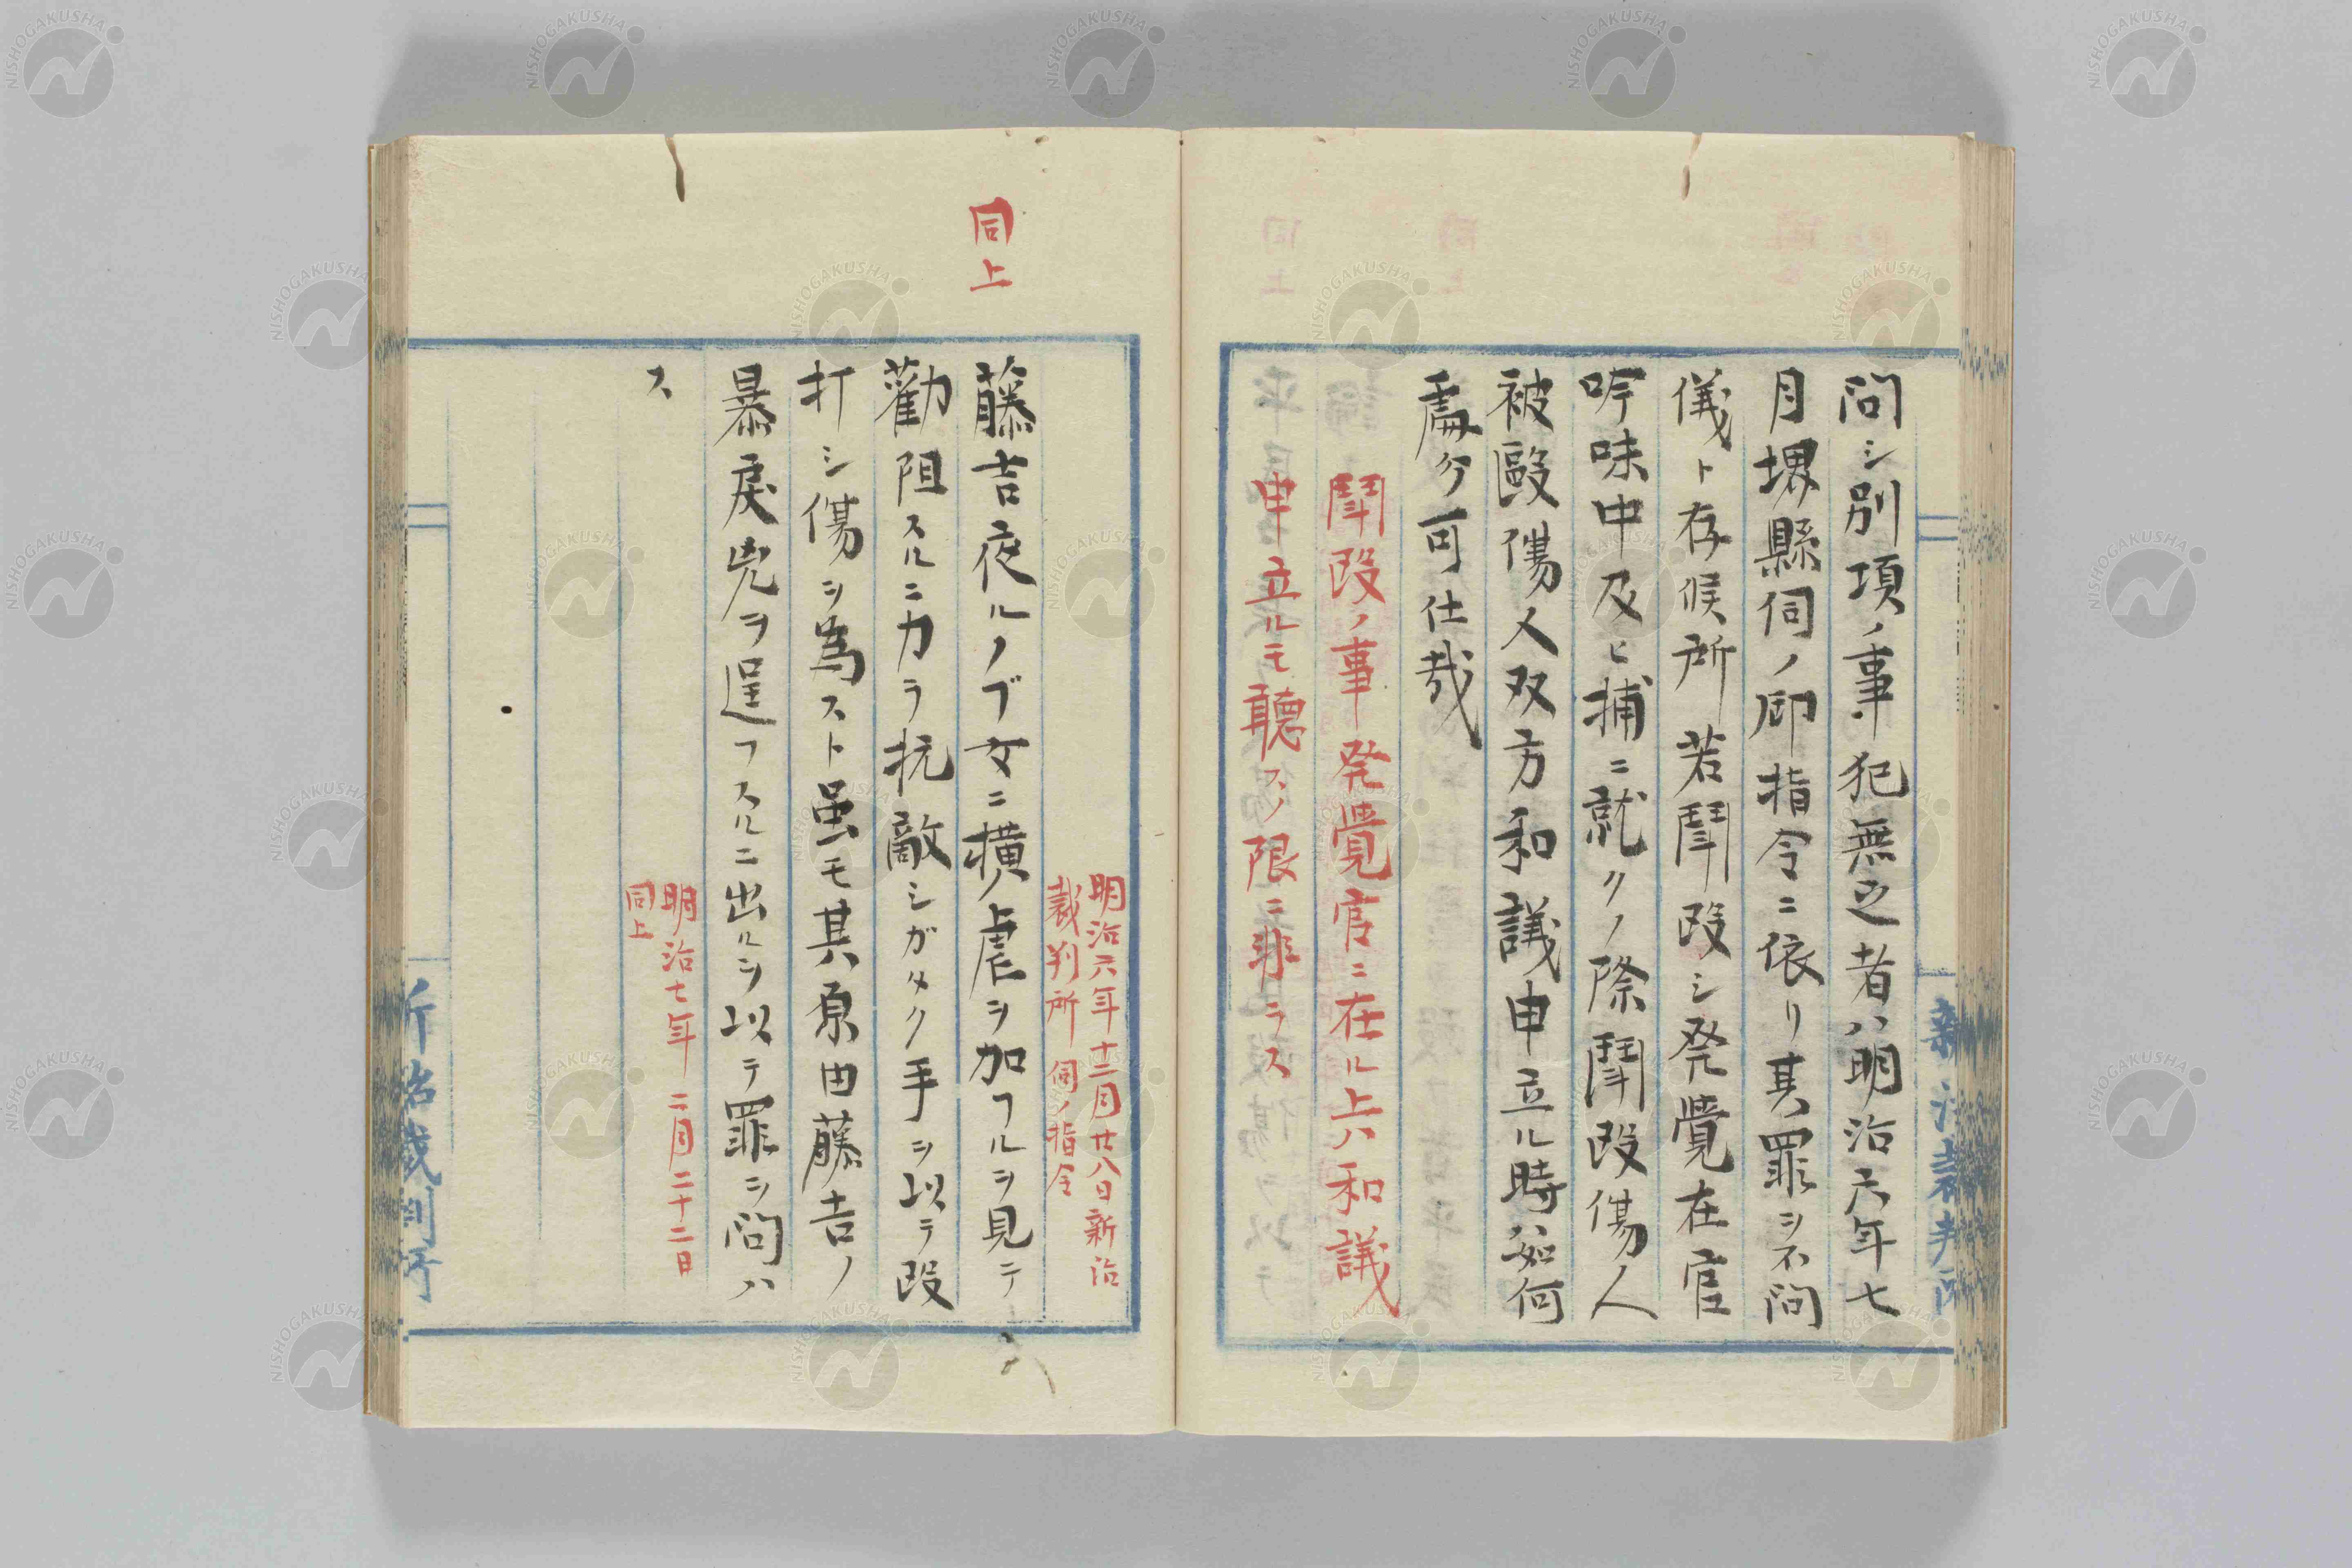 問シ別項ノ事犯無之者ハ明治六年七
月堺縣伺ノ御指令ニ依リ其罪ヲ不問
儀ト存候所若鬪毆シ発覺在官
吟味中及ヒ捕ニ就クノ際鬪毆傷人
被毆傷人双方和議申立ル時ハ如何
處分可仕哉
鬪毆ノ事発覺官ニ在ル上ハ和議
申立ルモ聽スノ限ニ非ラス
明治六年十二月廿八日新治
裁判所伺ノ指令
同上
藤吉夜ルノブ女ニ横虐ヲ加フルヲ見テ
勸阻スルニ力ラ抗敵シガタク手ヲ以テ毆
打シ傷ヲ為スト虽モ其原由藤吉ノ
暴戻兇ヲ逞フスルニ出ルヲ以テ罪ヲ問ハ
ス
明治七年二月二十二日
同上
新治裁判所
NISHOGAKUSHA